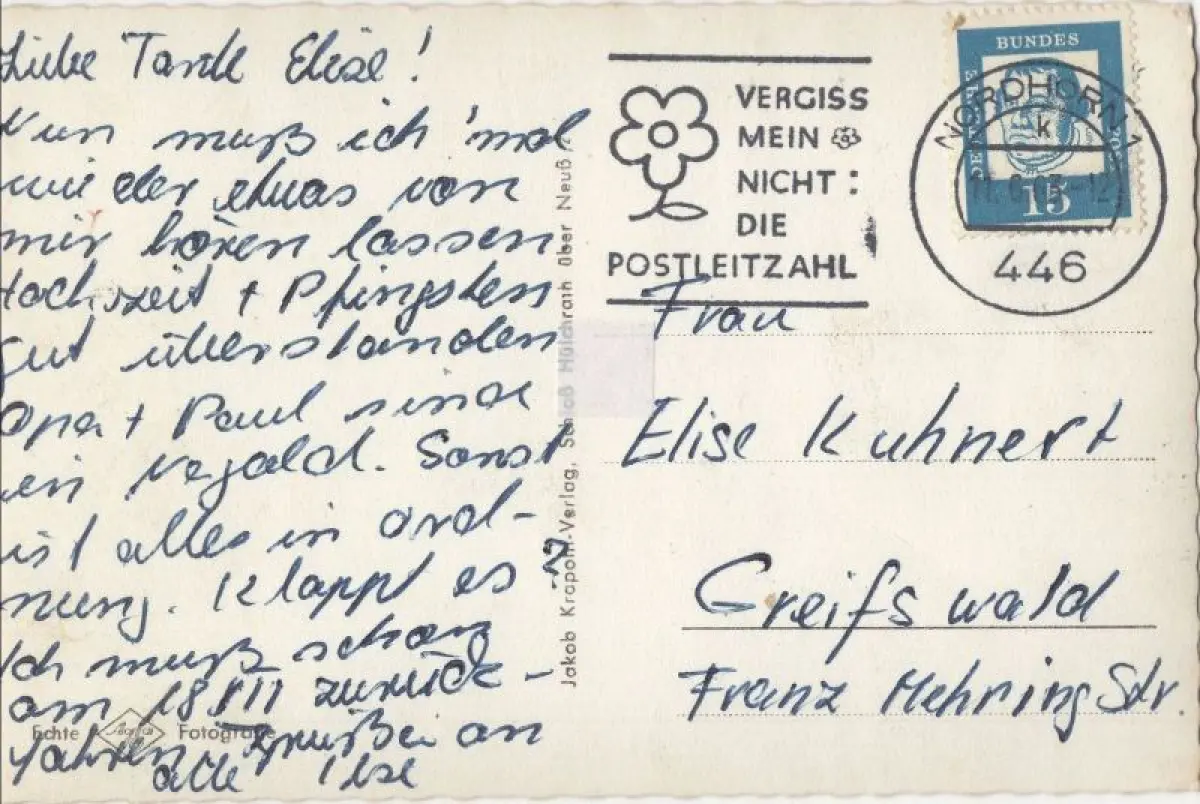 Liebe Tante Elise!
Nun muß ich 'mal
wieder etwas von
mir hören lassen
Hochzeit + Pfingsten
gut überstanden
Opa + Paul sind
in
Sonst
ist alles in Ord-
nung. Klappt es?
Ich muß schon
am 18. zurück-
fahren Grüße an
alle Ilse
Echte Agfa Fotografie
Jakob Krapohl-Verlag, Schloß Hülchrath über Neuß
VERGISS
MEIN
NICHT:
DIE
POSTLEITZAHL
DEUTSCHE BUNDESPOST
15
NORDHORN 1
k
446
Frau
Elise Kuhnert
Greifswald
Franz Mehring Str